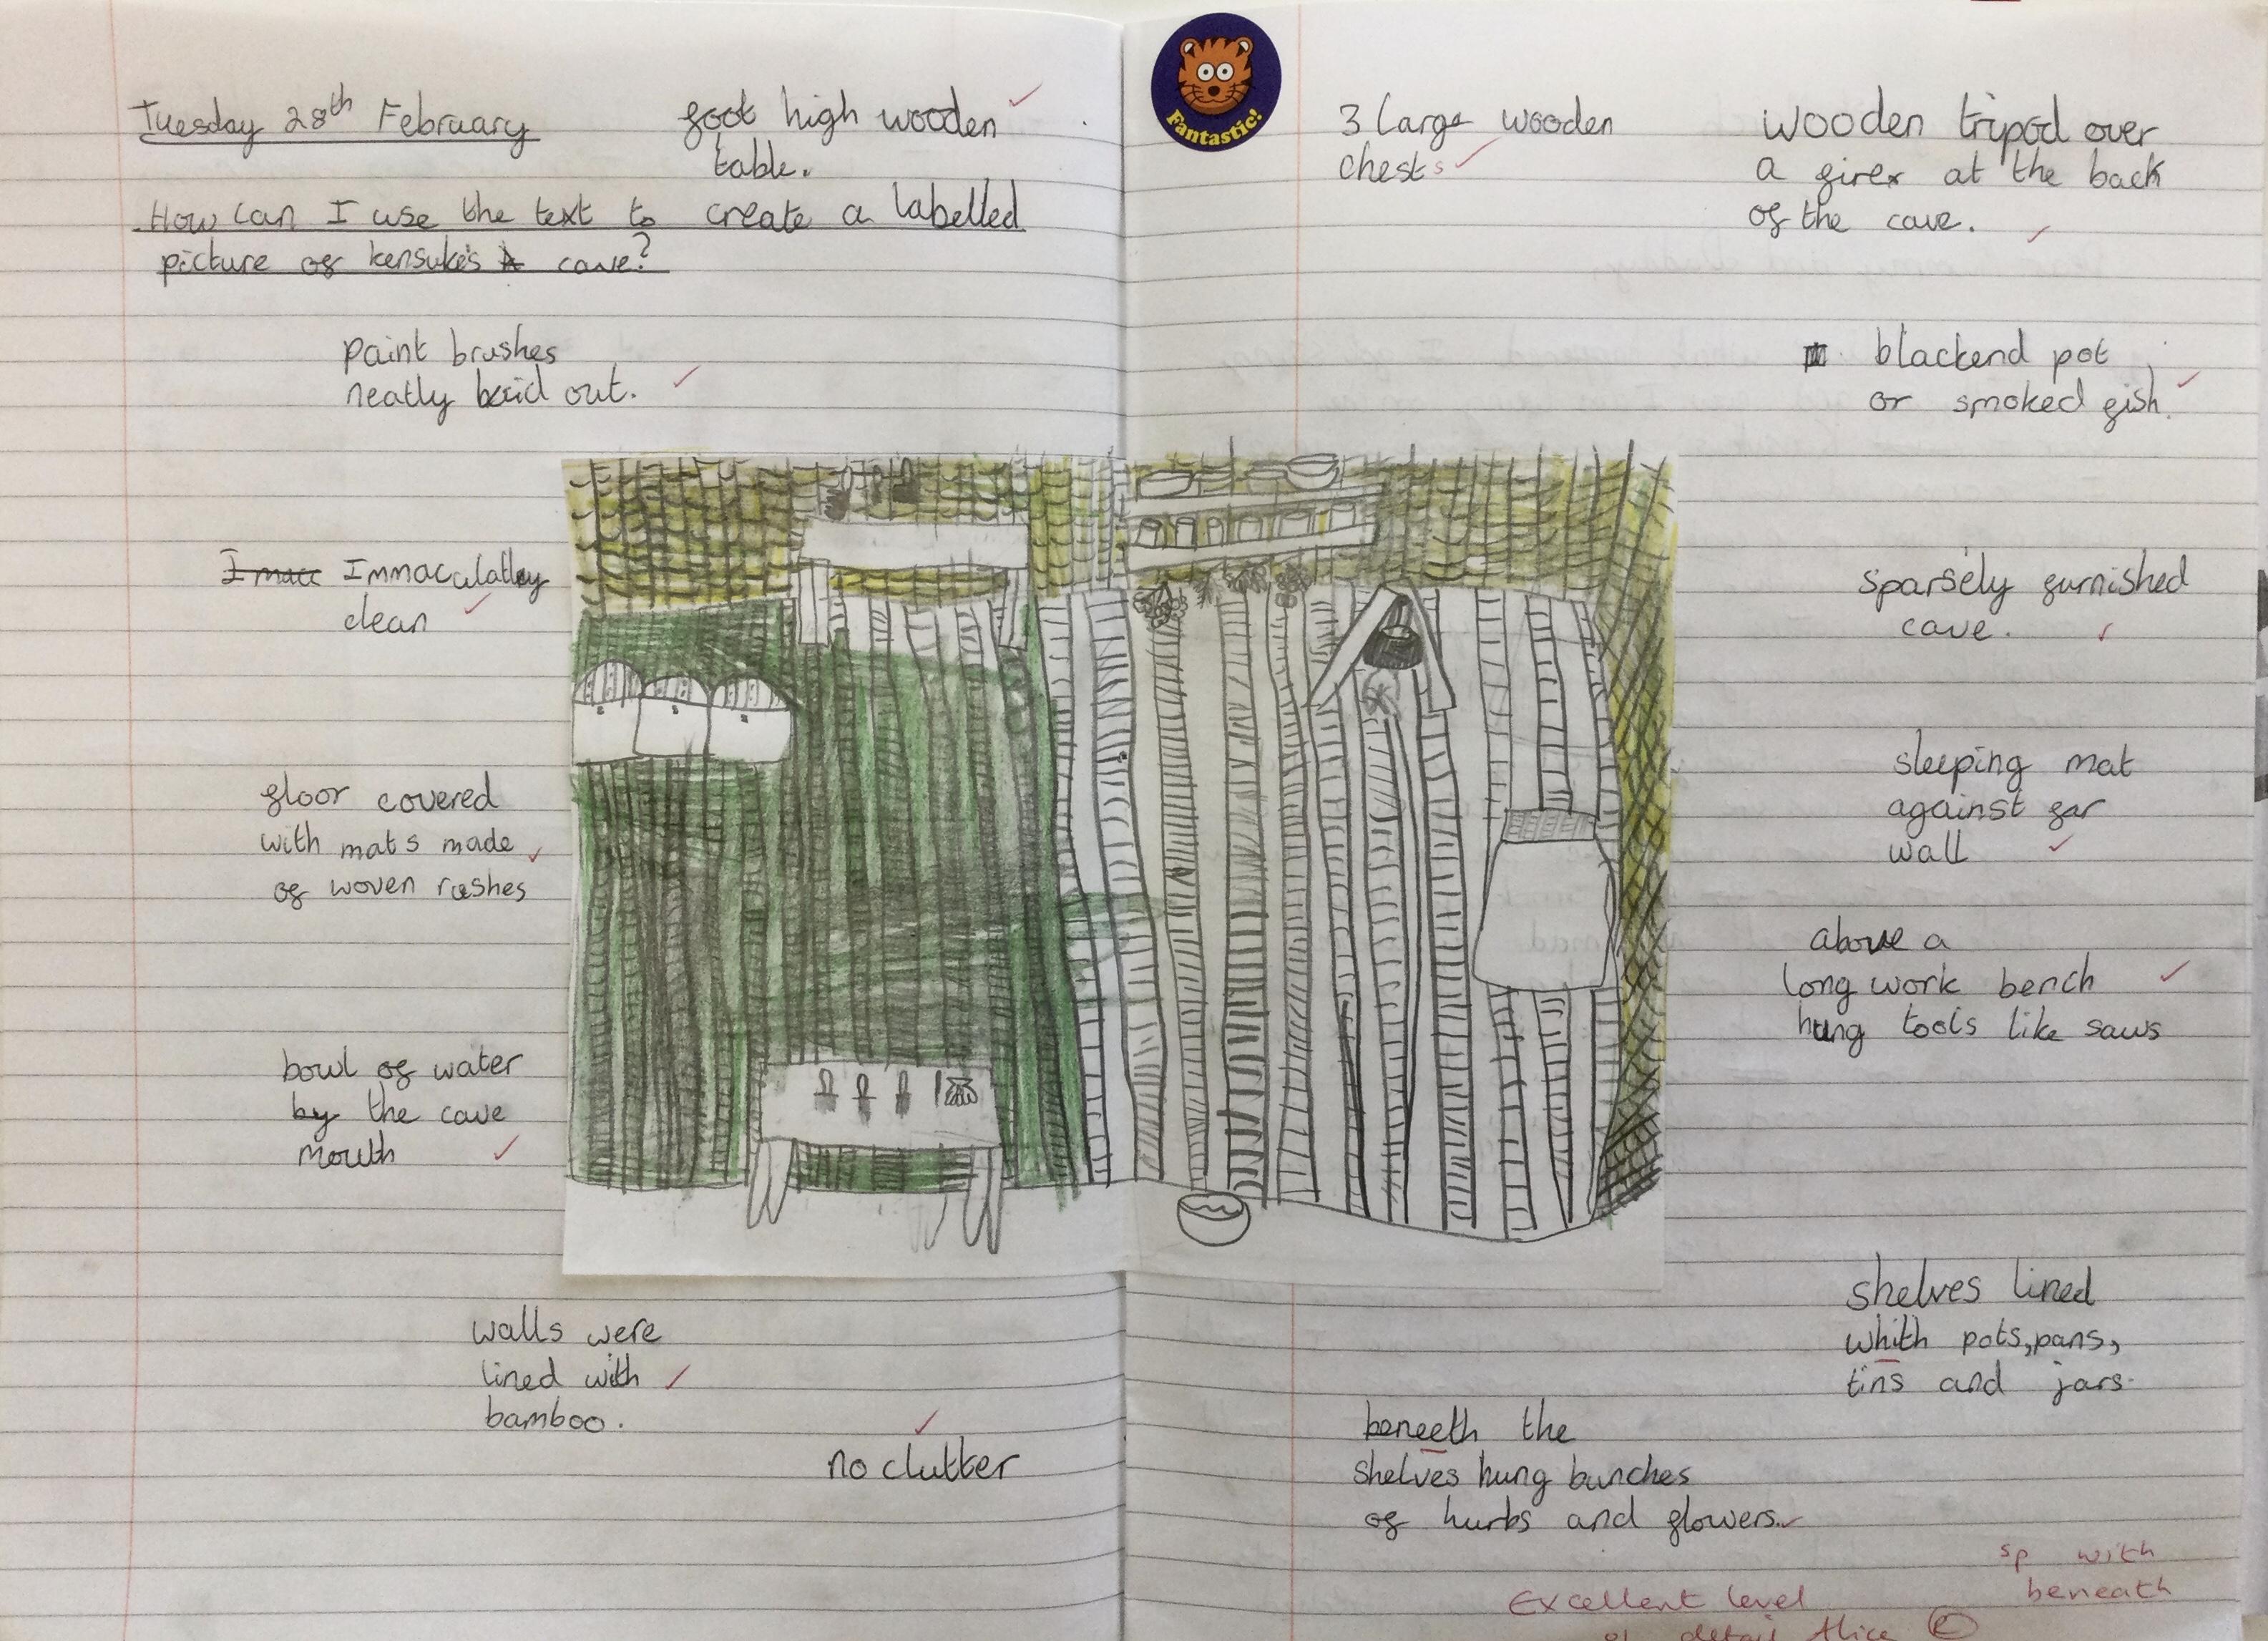 Tuesday 28th February
How can I use the text to create a labelled
picture of kensuke's cave?
foot high wooden
table.
paint brushes
neatly laid out.
Immaculatley
clean
floor covered
with mats made
of woven rushes
bowl of water
by the cave
mouth
walls were
lined with
bamboo.
no clutter
Fantastic!
3 large wooden
chests
wooden tripod over
a fire at the back
of the cave.
blackend pot
or smoked fish.
sparsely furnished
cave.
sleeping mat
against far
wall
above a
long work bench
hung tools like saws
shelves lined
whith pots, pans,
tins and jars.
beneeth the
shelves hung bunches
of hurbs and flowers.
sp with
beneath
Excellent level
of detail Alice